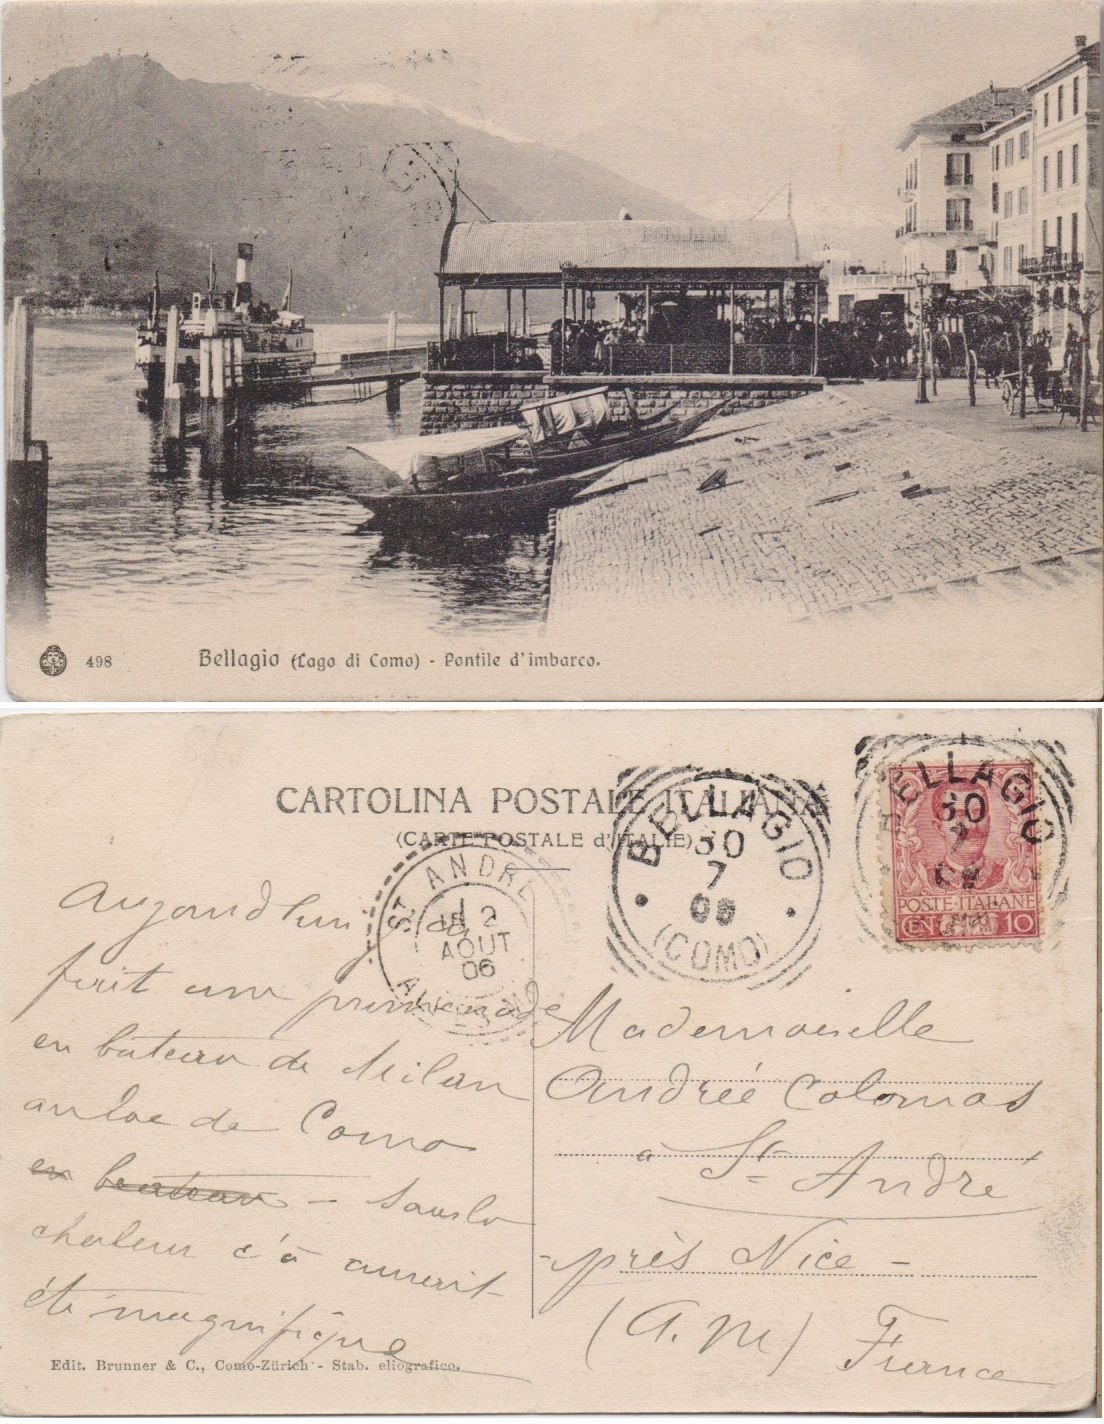 498
Bellagio (Lago di Como) - Pontile d'imbarco.
CARTOLINA POSTALE ITALIANA
(CARTE POSTALE d'ITALIE)
BELLAGIO
30
7
(COMO)
BELLAGIO
30
7
POSTE·ITALIANE
10
ST ANDRE
2
AOUT
06
Aujourd'hui
fait une promenade
en bateau de Milan
au lac de Como
en bateau - Sans la
chaleur ç'à aurait
été magnifique
Mademoiselle
Andrée Colomas
à St André
près Nice -
(A. M) France
Edit. Brunner & C., Como-Zürich - Stab. eliografico.